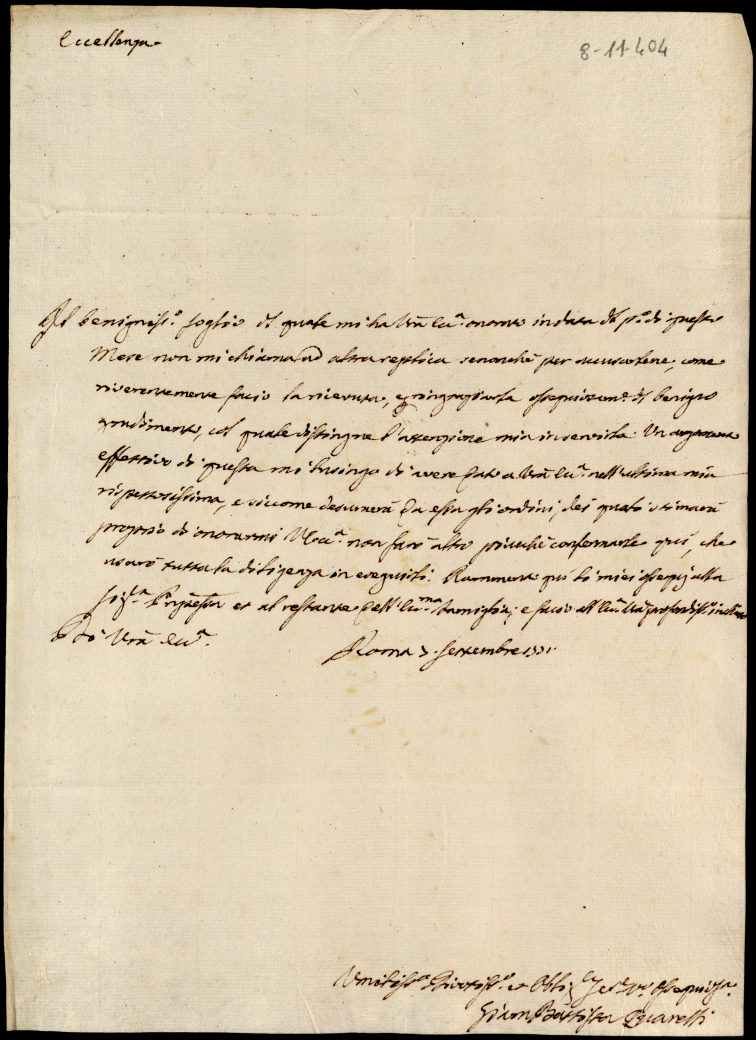 Eccellenza
8-11-404
Il benigniss.º foglio del quale mi ha Vrã Ecc.ª onorato in data del p.º di questo
Mese non mi chiama ad altra replica senonchè per accusarlene, come
riverentemente facio la ricevuta, e ringraziarla ossequiosam.e del benigno
gradimento, col quale distingue l'attenzione mia in servirla. Un argomento
effettivo di questa mi lusingo di avere dato a Vrã Ecc.ª nell'ultima mia
rispettosissima, e siccome desumerà da essa gli ordini, dei quali stimerà
proprio di onorarmi V. Ecc.ª non farò altro più che confermarle qui, che
userò tutta la diligenza in eseguirli. Rammento quì li miei ossequj alla
Sig.ra P'npessa et al restante dell'Ecc.ma famiglia; e facio all'Ecc.ª Vrã profondiss.º inchino
Di Vrã Ecc.ª
Roma 7. Settembre 1771.
Umiliss.º Divotiss.º et Obblig.º Ser.re Vr.º Ossequiosis.º
Gioan Battista